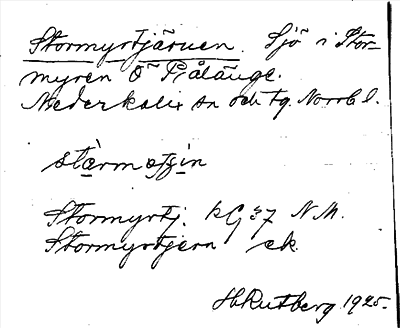 Stormyrtjärnen. Sjö i Stor-
myren Ö Pålänge.
Nederkalix sn och tg. Norrb l.
Stormyrtj. kG 37 N.M.
Stormyrtjern ek.
HRutberg 1925.